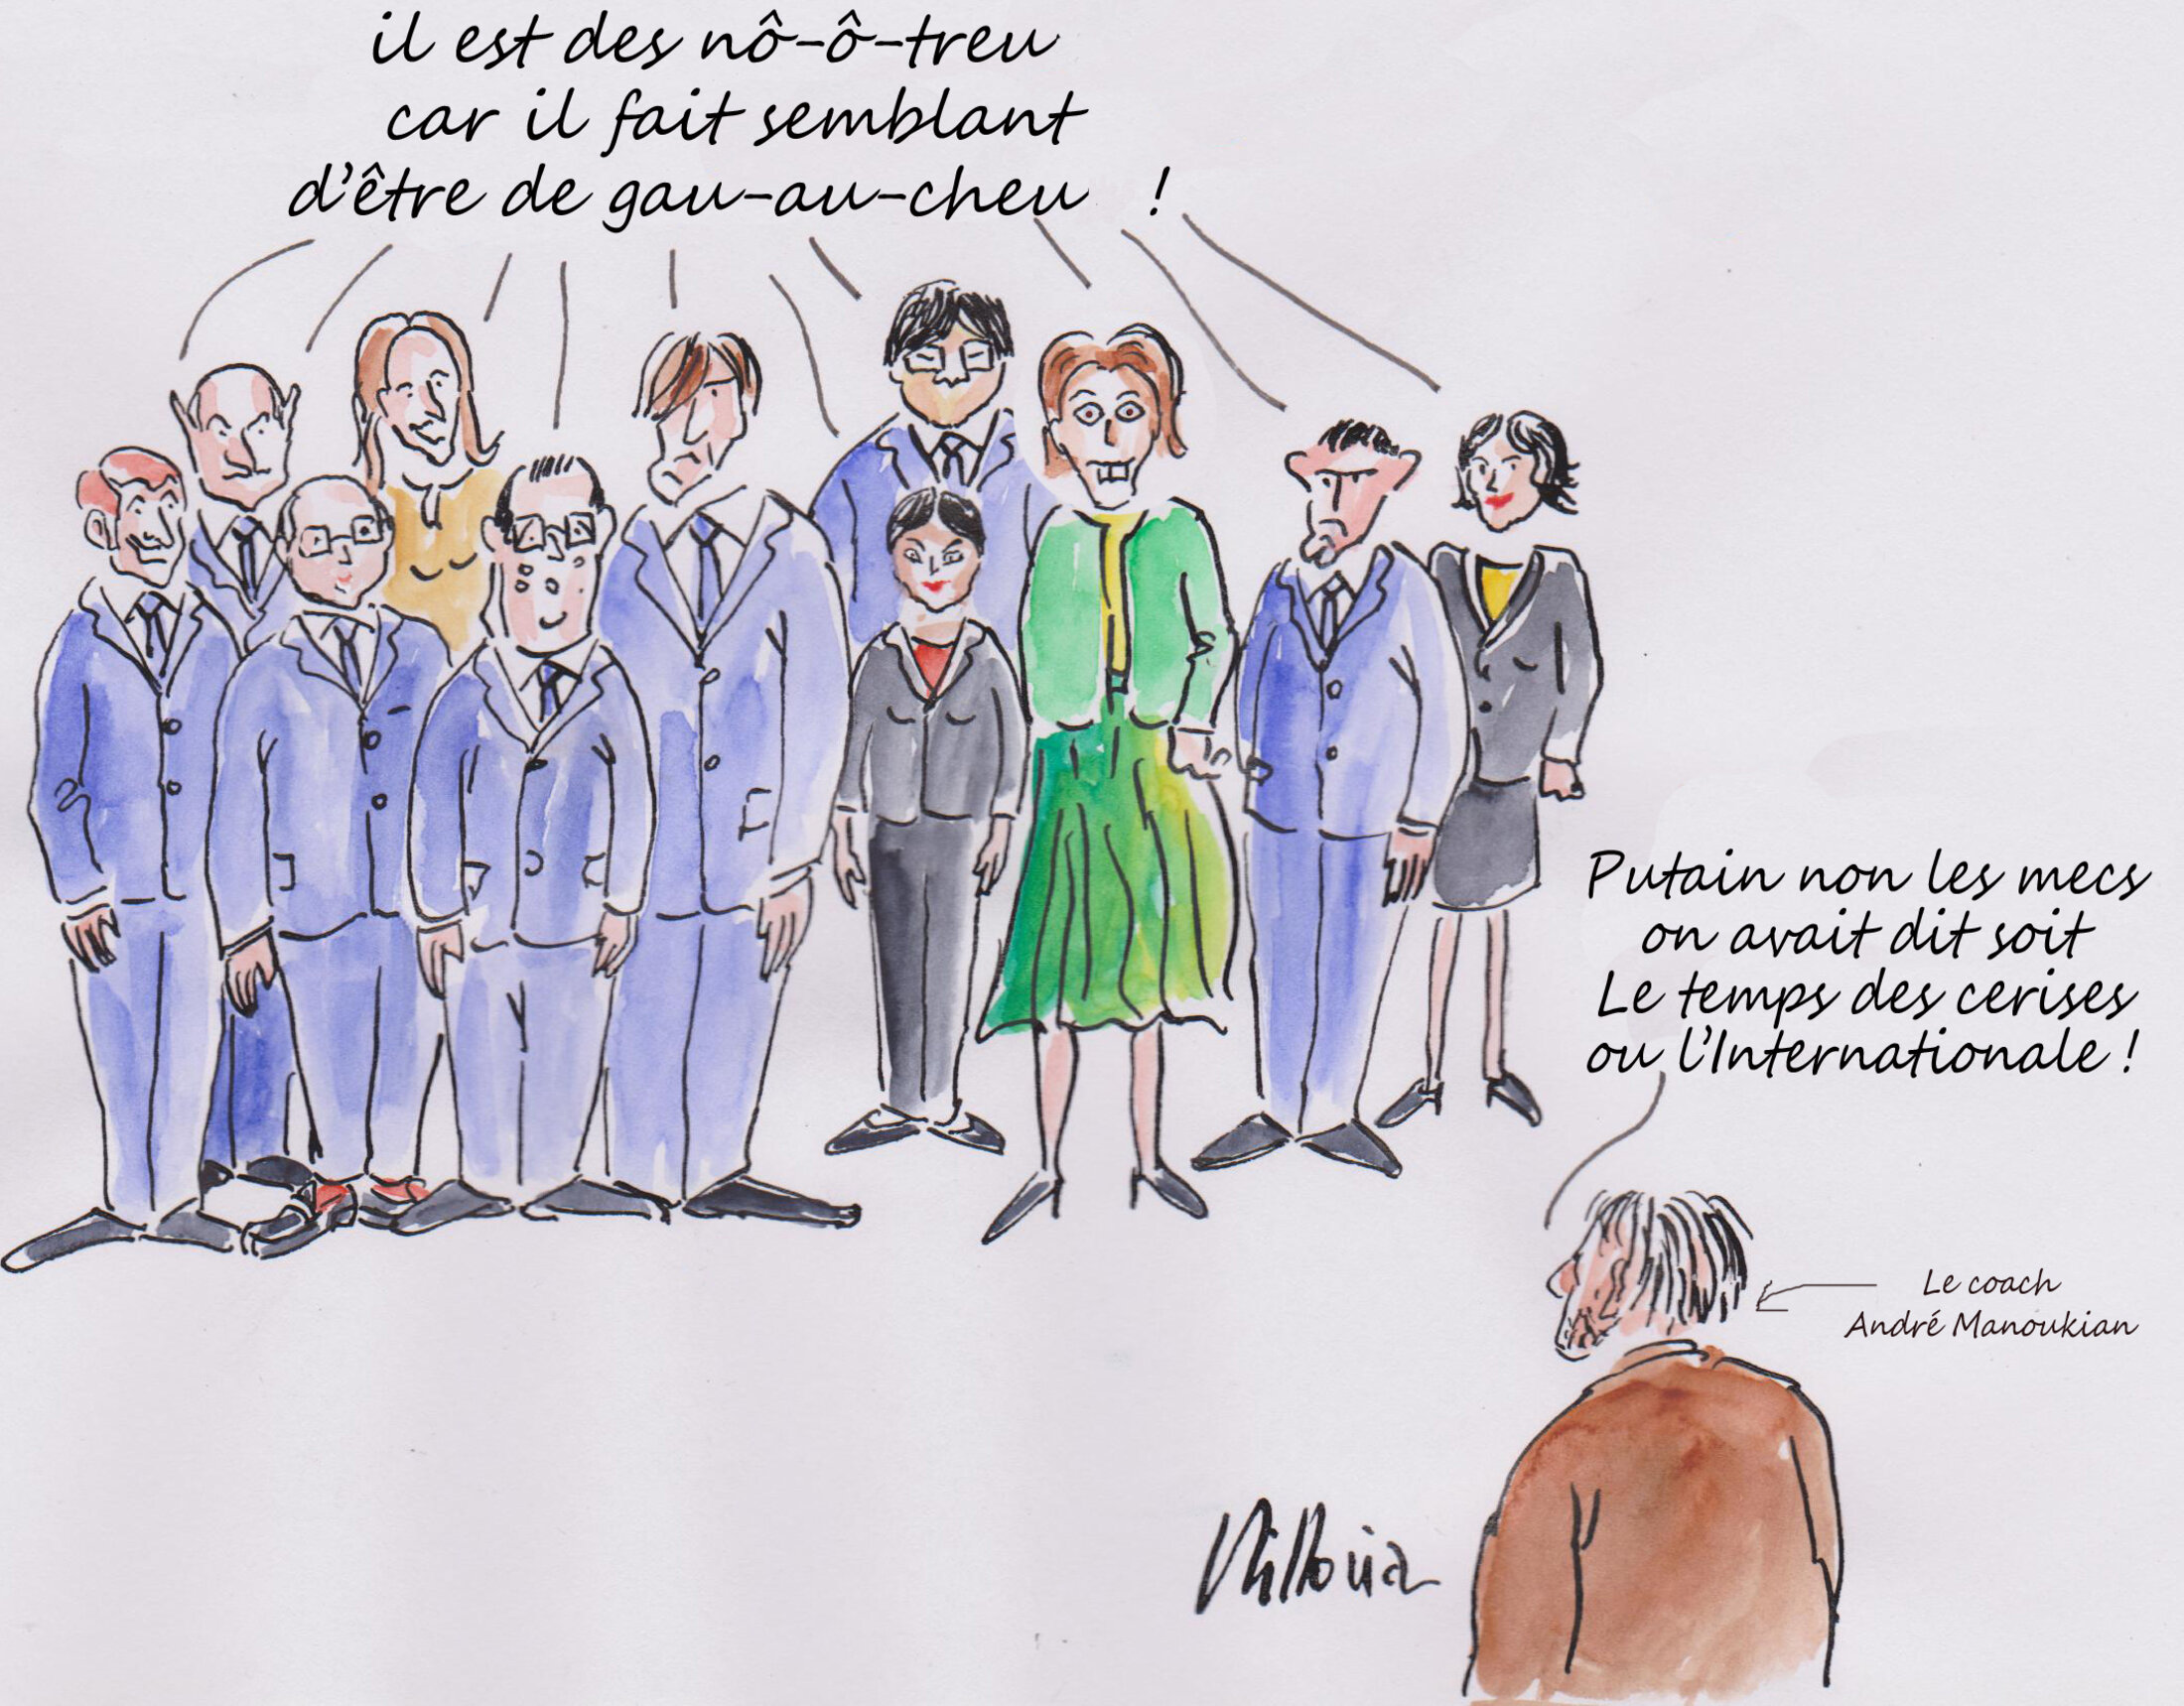 il est des nô-ô-treu
car il fait semblant
d'être de gau-au-cheu !
Putain non les mecs
on avait dit soit
Le temps des cerises
ou l'Internationale !
Le coach
André Manoukian